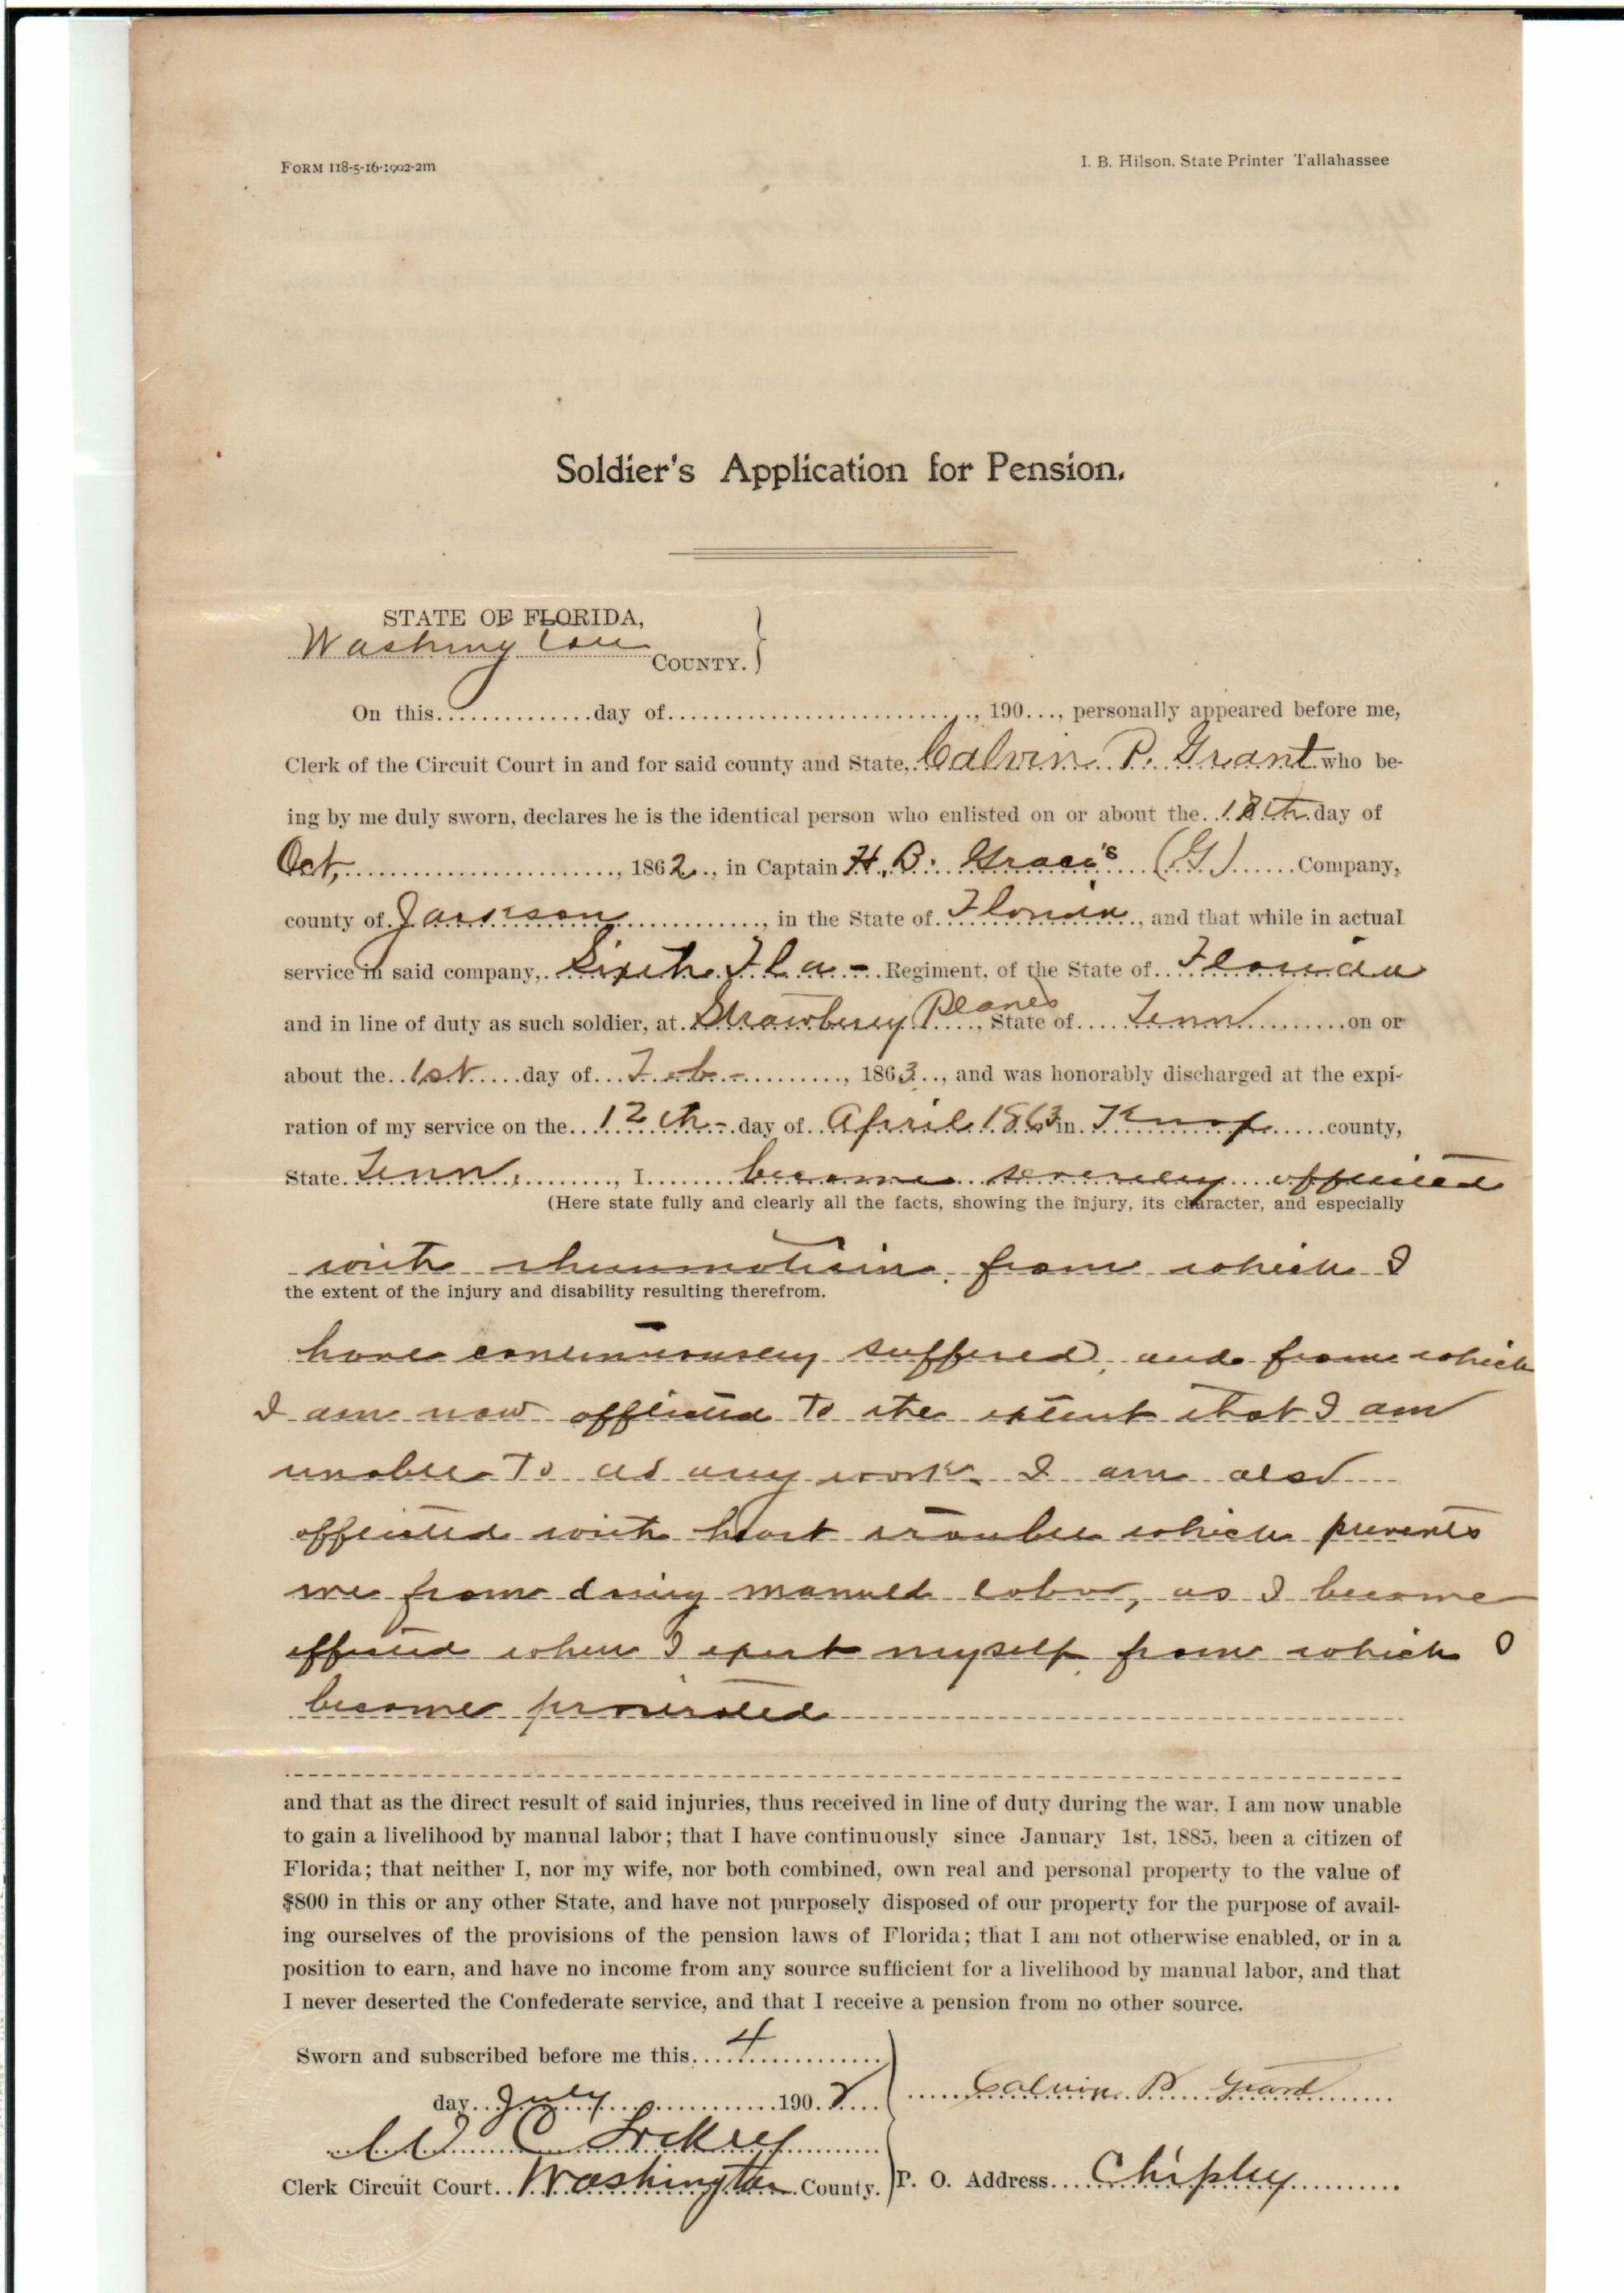 FORM 118-5-16-1902-2m
I. B. Hilson. State Printer Tallahassee
Soldier's Application for Pension.
STATE OF FLORIDA,
Washington COUNTY.
On this...............day of............................., 190..., personally appeared before me,
Clerk of the Circuit Court in and for said county and State, Calvin P. Grant who be-
ing by me duly sworn, declares he is the identical person who enlisted on or about the 18th day of
Oct, 1862, in Captain H. B. Grace's (G) Company,
county of Jackson, in the State of Florida, and that while in actual
service in said company, Sixth Fla - Regiment, of the State of Florida
and in line of duty as such soldier, at Strawberry Planes, State of Tenn on or
about the 1st day of Feb -, 1863, and was honorably discharged at the expi-
ration of my service on the 12th - day of April 1863 in Knox county,
State Tenn, I become severely afflicted
(Here state fully and clearly all the facts, showing the injury, its character, and especially
with rheumatism, from which I
the extent of the injury and disability resulting therefrom.
have continuously suffered, and from which
I am now afflicted to the extent that I am
unable to do any work. I am also
afflicted with heart trouble which prevents
me from doing manual labor, as I become
when I exert myself from which I
become prostrated
and that as the direct result of said injuries, thus received in line of duty during the war, I am now unable
to gain a livelihood by manual labor; that I have continuously since January 1st, 1885, been a citizen of
Florida; that neither I, nor my wife, nor both combined, own real and personal property to the value of
$800 in this or any other State, and have not purposely disposed of our property for the purpose of avail-
ing ourselves of the provisions of the pension laws of Florida; that I am not otherwise enabled, or in a
position to earn, and have no income from any source sufficient for a livelihood by manual labor, and that
I never deserted the Confederate service, and that I receive a pension from no other source.
Sworn and subscribed before me this 4
day July 1902
Calvin P. Grant
W C Lockey
Clerk Circuit Court Washington County.
P. O. Address Chipley